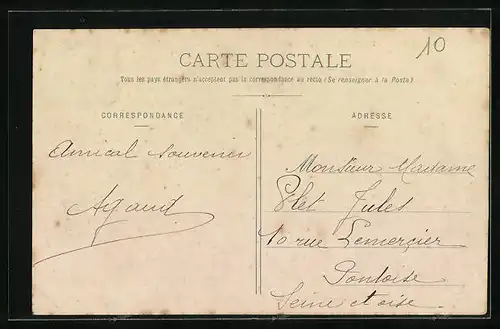 10
CARTE POSTALE
Tous les pays étrangers n'acceptent pas la correspondance au recto (Se renseigner à la Poste)
CORRESPONDANCE
ADRESSE
Amical souvenir
Monsieur Madame
Jules
10 rue Lemercier
Pontoise
Seine et oise